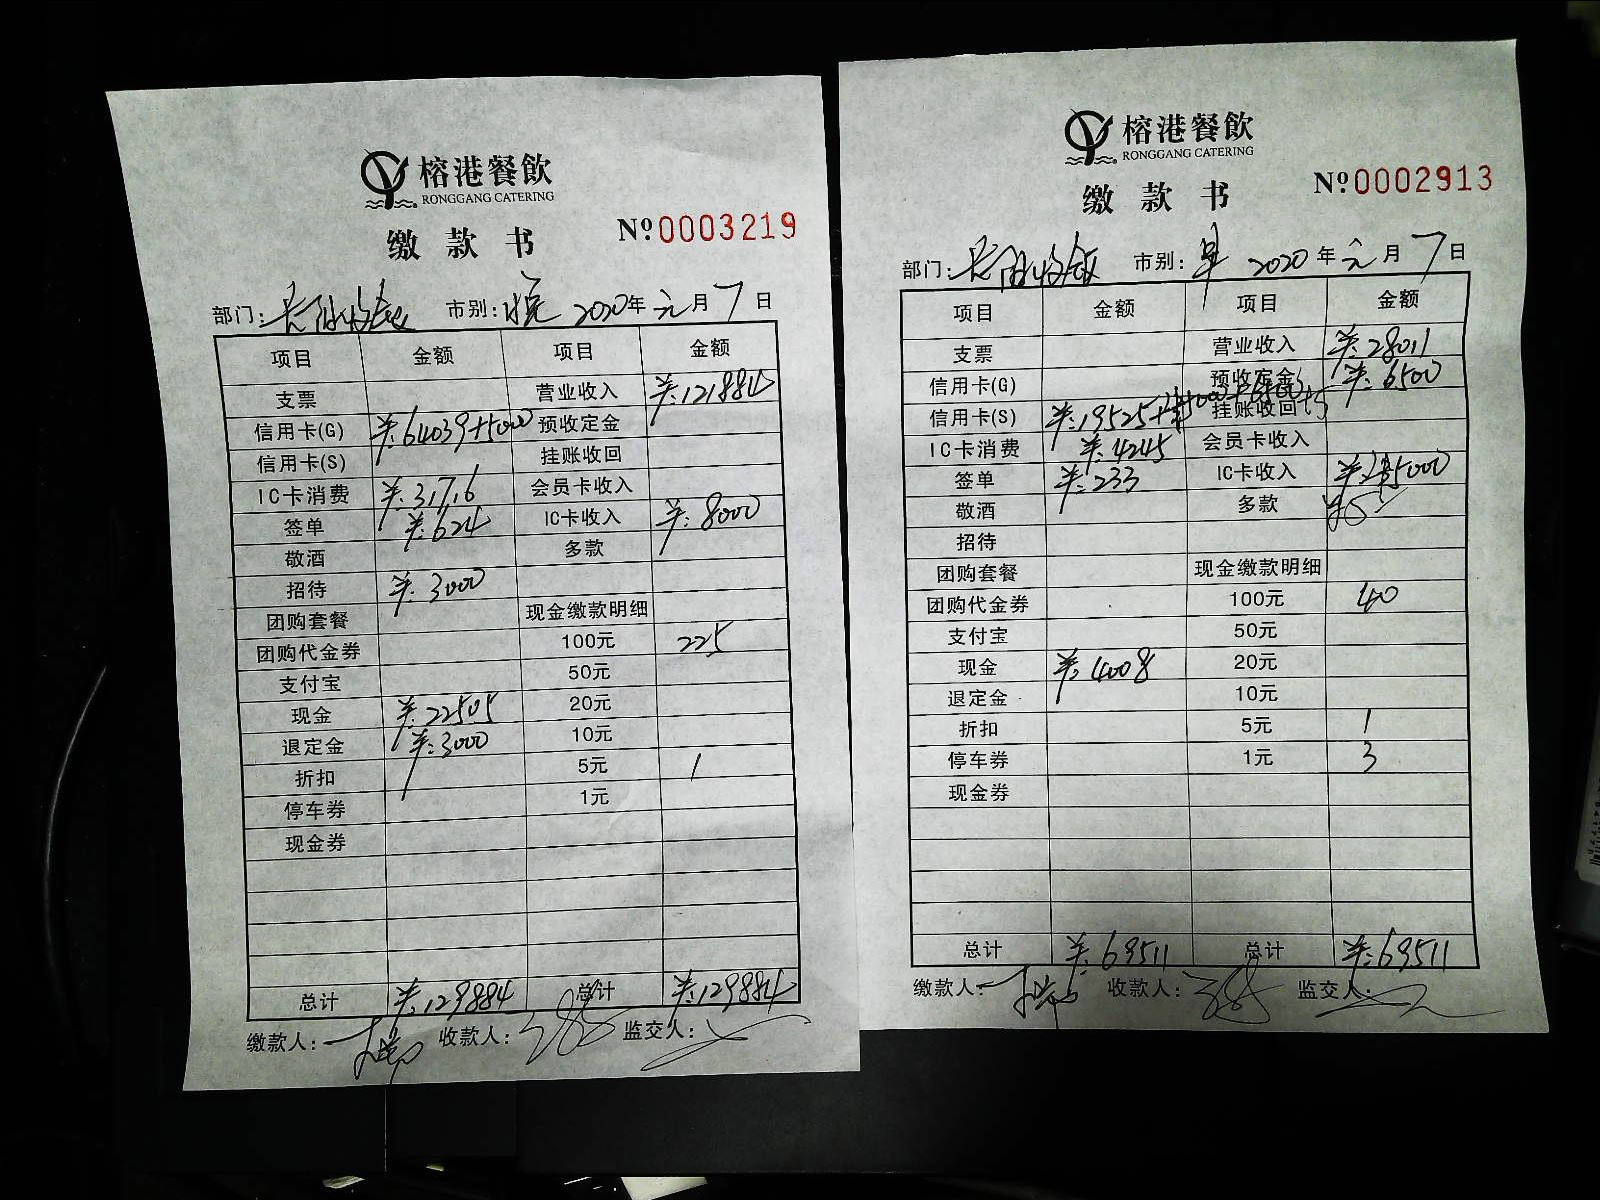 榕港餐飲
RONGGANG CATERING
缴款书
Nº0003219
部门: 市别: 2020年元月7日
项目 金额 项目 金额
支票 营业收入 ¥:121884
信用卡(G) ¥:64039+1000 预收定金
信用卡(S) 挂账收回
IC卡消费 ¥:31716 会员卡收入
签单 ¥:624 IC卡收入 ¥:8000
敬酒 多款
招待 ¥:3000
团购套餐 现金缴款明细
团购代金券 100元 225
支付宝 50元
现金 ¥:22505 20元
退定金 ¥:3000 10元
折扣 5元 1
停车券 1元
现金券
总计 ¥:129884 总计 ¥:129884
缴款人: 收款人: 监交人:
榕港餐飲
RONGGANG CATERING
缴款书
Nº0002913
部门: 市别:早 2020年元月7日
项目 金额 项目 金额
支票 营业收入 ¥:28011
信用卡(G) 预收定金 ¥:6500
信用卡(S) ¥:19525+ 挂账收回
IC卡消费 ¥:4245 会员卡收入
签单 ¥:233 IC卡收入 ¥:35000
敬酒 多款
招待
团购套餐 现金缴款明细
团购代金券 100元 40
支付宝 50元
现金 ¥:4008 20元
退定金 10元
折扣 5元 1
停车券 1元 3
现金券
总计 ¥:69511 总计 ¥:69511
缴款人: 收款人: 监交人: